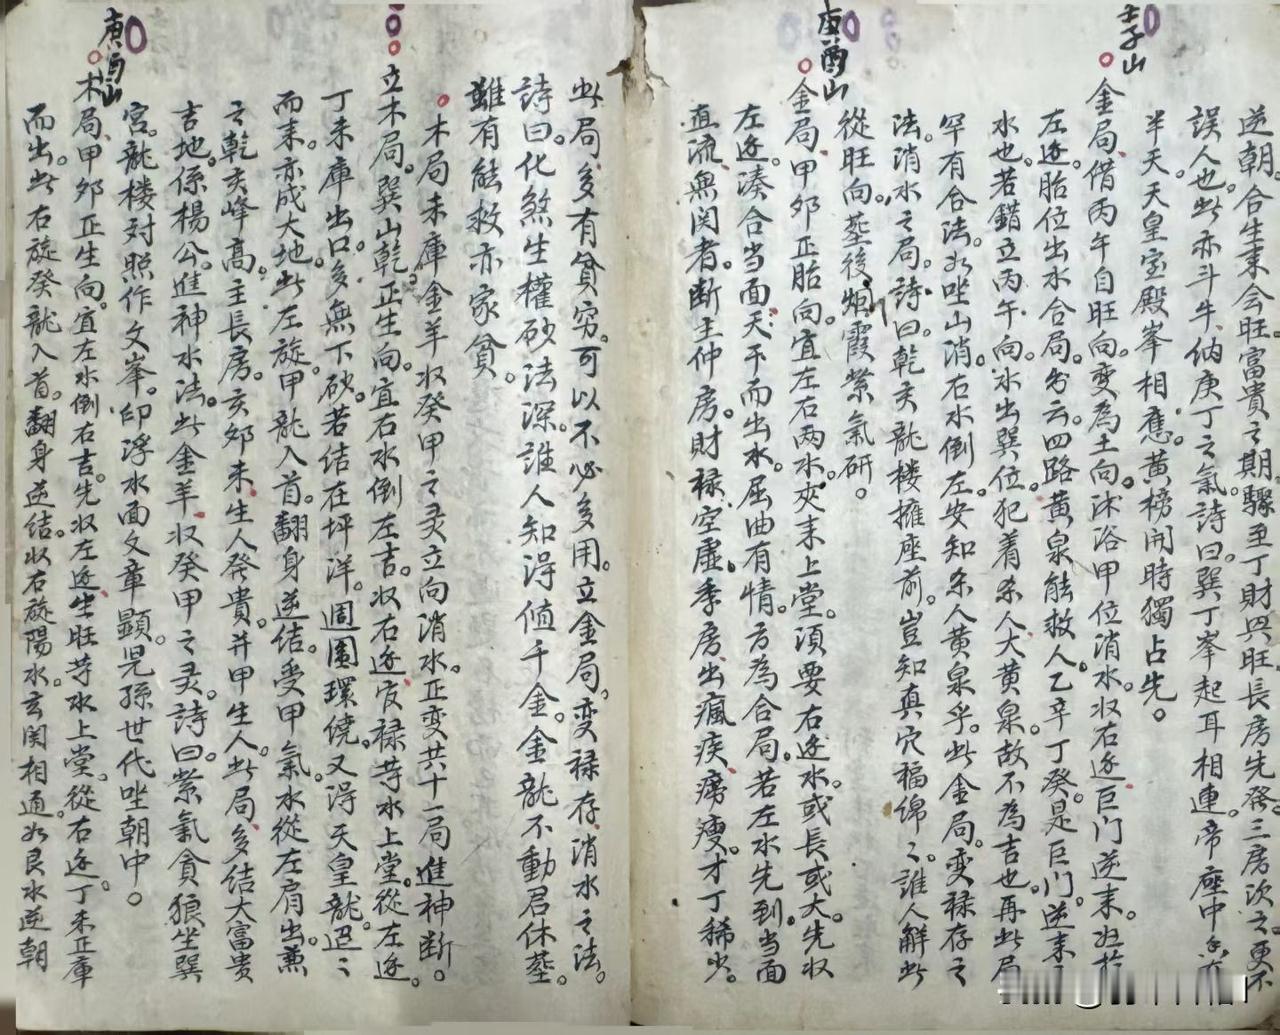 逆朝。合生来会旺富貴之期。驟至丁財興旺。長房先發。三房次之。更不
誤人也。此亦斗牛。納庚丁之氣。詩曰。巽丁峯起耳相連。帝座中
半天。天皇宝殿峯相應。黄榜開時獨占先。
壬子山
金局。借丙午自旺向。変為土向。沐浴甲位消水。収右边巨门逆来。
左边胎位出水合局。云四路黄泉能救人。乙辛丁癸。是巨门。逆来
水也。若錯立丙午向。水出巽位。犯着杀人大黄泉。故不為吉也。再此局
罕有合法。如坐山消。右水倒左。安知杀人黄泉乎。此金局。変禄存之
法。消水之局。詩曰。乾亥龍楼擁座前。豈知真穴福绵〻。誰人解此
從旺向。塟後烟霞紫氣研。
庚酉山
金局。甲卯正胎向。宜左右两水。夾来上堂。須要右边水。或長或大。先収
左边。湊合当面。天干而出水。屈曲有情。方為合局。若左水先到。当面
直流。無関者。断主仲房。財禄空虚。季房。出瘋疾痨瘦。才丁稀少。
此局。多有貧穷。可以不必多用。立金局。変禄存。消水之法。
詩曰。化煞生權砂法深。誰人知得値千金。金龍不動君休塟。
雖有能救亦家貧。
木局未庫金羊収癸甲之灵立向消水。正変共十一局進神断。
立木局。巽山乾正生向。宜右水倒左吉。収右边官禄等水上堂。從左边。
丁未庫出口。多無下砂。若结在坪洋。週圍環繞。又得天皇龍。迢〻
而来。亦成大地。此左旋。甲龍入首。翻身逆结。受甲氣。水從左肩出。兼
之乾亥峰高。主長房。亥卯未生人發貴。并甲生人。此局。多结大富貴
吉地。係楊公。進神水法。此金羊。収癸甲之灵。詩曰。紫氣貪狼坐巽
宮。龍楼対照作文峯。印浮水面文章顯。児孫世代坐朝中。
庚酉山
木局。甲卯正生向。宜左水倒右吉。先収左边。生旺等水上堂。從右边。丁未正庫
而出。此右旋癸龍入首。翻身逆结。収右旋陽水。玄関相通。如艮水逆朝